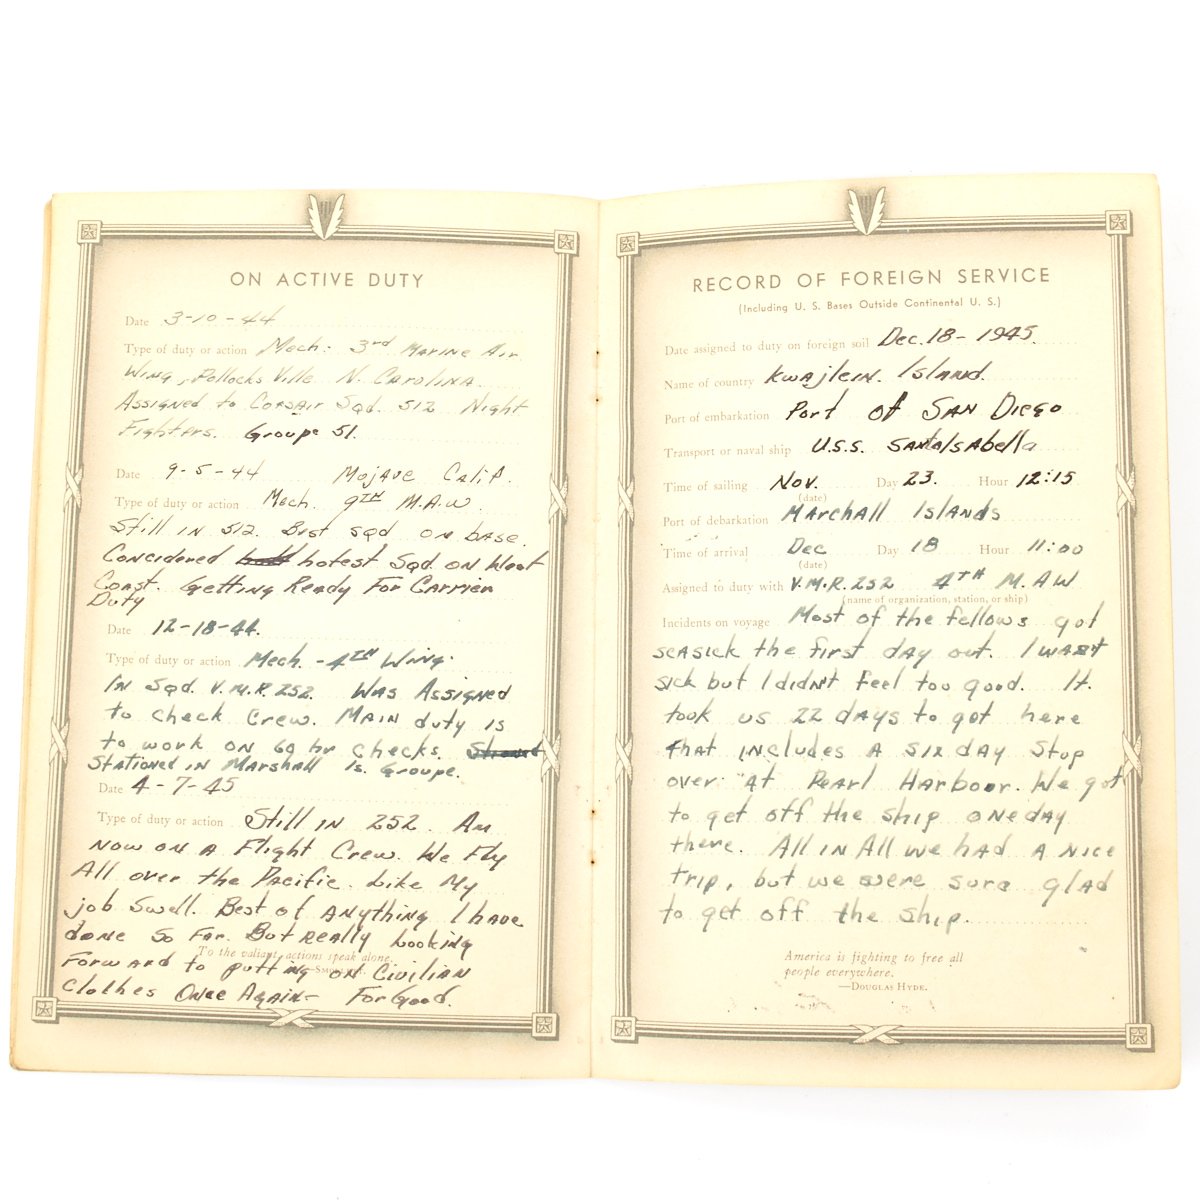 ON ACTIVE DUTY
Date 3-10-44
Type of duty or action Mech. 3rd Marine Air
Wing, Pollocks Ville N. Carolina.
Assigned to Corsair Sqd. 512 Night
Fighters. Groupe 51.
Date 9-5-44 Mojave Calif.
Type of duty or action Mech. 9TH M.A.W.
Still in 512. Best sqd on base.
Concidered hotest Sqd. on West
Coast. Getting Ready For Carrier
Duty
Date 12-18-44.
Type of duty or action Mech. - 4TH Wing.
In Sqd. V.M.R. 252. Was Assigned
to check Crew. Main duty is
to work on 60 hr checks.
Stationed in Marshall Is. Groupe.
Date 4-7-45
Type of duty or action Still in 252. Am
now on a Flight Crew. We Fly
All over the Pacific. Like My
job Swell. Best of anything I have
done So Far. But really Looking
To the valiant, actions speak alone.
Forward to putting on Civilian
clothes Once Again- For Good.
RECORD OF FOREIGN SERVICE
(Including U. S. Bases Outside Continental U. S.)
Date assigned to duty on foreign soil Dec. 18 - 1945.
Name of country Kwajlein. Island.
Port of embarkation Port of San Diego
Transport or naval ship U.S.S. Santa Isabella
Time of sailing Nov. Day 23. Hour 12:15
(date)
Port of debarkation Marchall Islands
Time of arrival Dec Day 18 Hour 11:00
(date)
Assigned to duty with V.M.R. 252 4TH M.AW
(name of organization, station, or ship)
Incidents on voyage Most of the fellows got
seasick the first day out. I wasnt
sick but I didn't feel too good. It.
took us 22 days to got here
that includes a six day stop
over at Pearl Harbour. We got
to get off the ship one day
there. All in All we had a nice
trip, but we were sure glad
to get off the ship.
America is fighting to free all
people everywhere.
—Douglas Hyde.